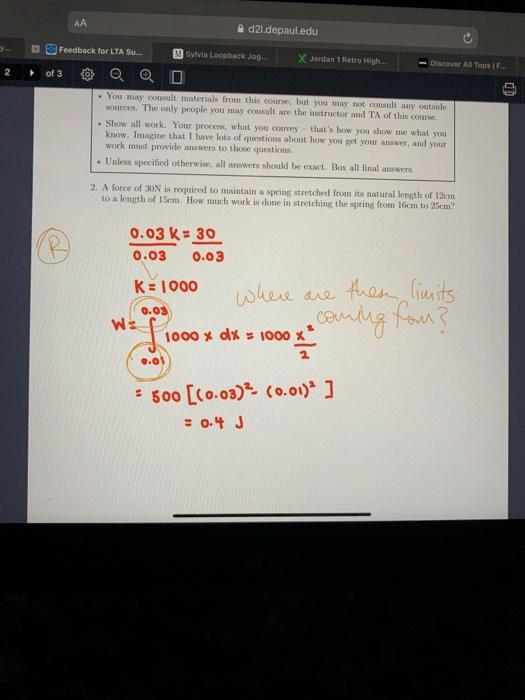 AA
d2l.depaul.edu
Feedback for LTA Su...
M Sylvia Loopback Jog...
X Jordan 1 Retro High...
Discover All Tops | F...
2
of 3
• You may consult materials from this course, but you may not consult any outside
sources. The only people you may consult are the instructor and TA of this course.
• Show all work. Your process, what you convey – that's how you show me what you
know. Imagine that I have lots of questions about how you got your answer, and your
work must provide answers to those questions.
• Unless specified otherwise, all answers should be exact. Box all final answers.
2. A force of 30N is required to maintain a spring stretched from its natural length of 12cm
to a length of 15cm. How much work is done in stretching the spring from 16cm to 25cm?
R
0.03 K = 30
0.03 0.03
K = 1000
Where are these limits
coming from?
0.03
W = ∫ 1000 x dx = 1000 x²
2
0.01
= 500 [(0.03)² - (0.01)² ]
= 0.4 J